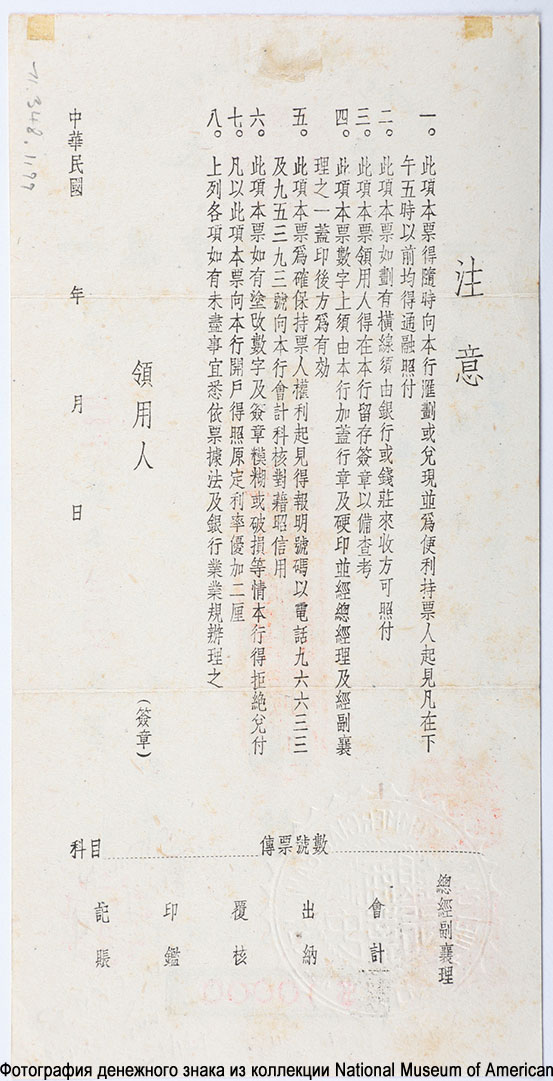 注意
一。此項本票得隨時向本行滙劃或兌現並爲便利持票人起見凡在下
午五時以前均得通融照付
二。此項本票如劃有橫線須由銀行或錢莊來收方可照付
三。此項本票領用人得在本行留存簽章以備查考
四。此項本票數字上須由本行加蓋行章及硬印並經總經理及經副襄
理之一蓋印後方爲有效
五。此項本票爲確保持票人權利起見得報明號碼以電話九六六三三
及九五三九三號向本行會計科核對藉昭信用
六。此項本票如有塗改數字及簽章模糊或破損等情本行得拒絶兌付
七。凡以此項本票向本行開戶得照原定利率優加二厘
八。上列各項如有未盡事宜悉依票據法及銀行業業規辦理之
領用人 (簽章)
中華民國 年 月 日
71.348.1199
科目 傳票號數
總經副襄理
會計
出納
覆核
印鑑
記賬
$10000
Фотография денежного знака из коллекции National Museum of American